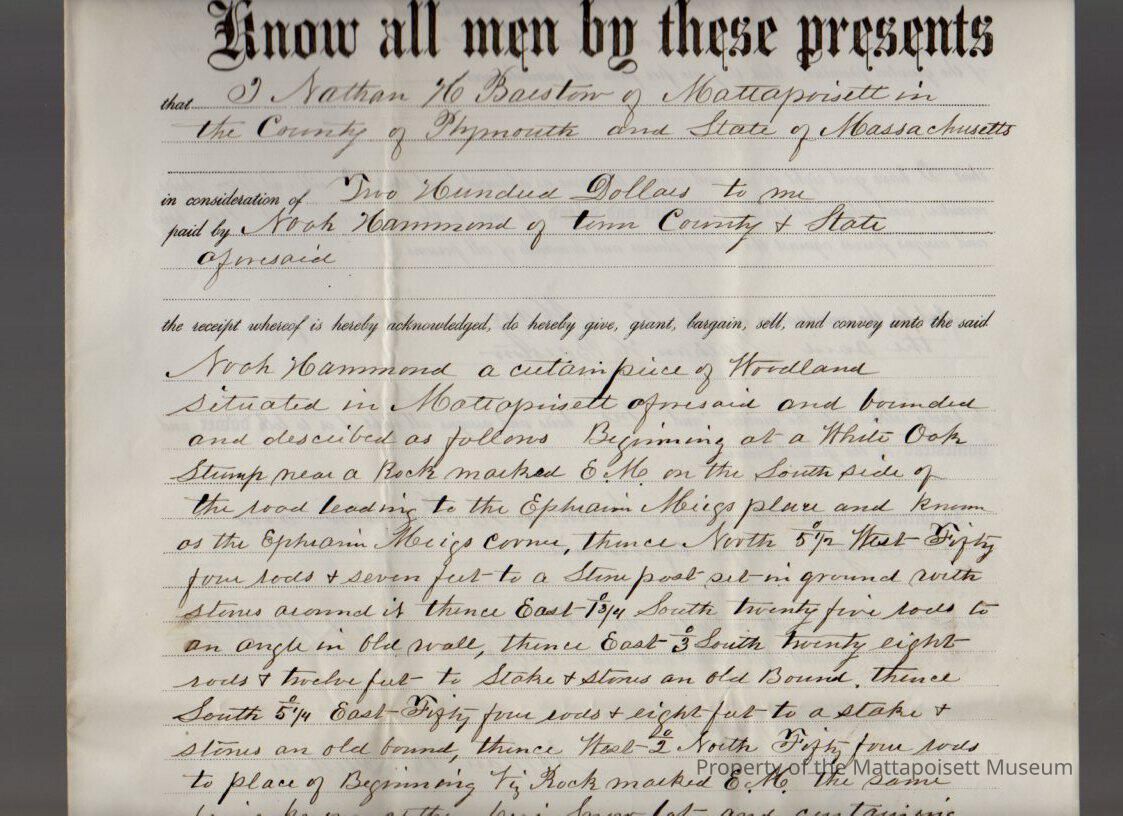 Know all men by these presents
that I Nathan H Barstow of Mattapoisett in
the County of Plymouth and State of Massachusetts
in consideration of Two Hundred Dollars to me
paid by Noah Hammond of town County & State
aforesaid
the receipt whereof is hereby acknowledged, do hereby give, grant, bargain, sell, and convey unto the said
Noah Hammond a certain piece of Woodland
situated in Mattapoisett aforesaid and bounded
and described as follows Beginning at a White Oak
Stump near a Rock marked E.M. on the South side of
the road leading to the Ephraim Meigs place and known
as the Ephraim Meigs corner, thence North 5°1/2 West Fifty
four rods & seven feet to a Stone post set in ground with
stones around it thence East 1°3/4 South twenty five rods to
an angle in old wall, thence East 3° South twenty eight
rods & twelve feet to Stake & stones an old Bound, thence
South 5°1/4 East Fifty four rods & eight feet to a stake &
stones an old bound, thence West 2° North Fifty four rods
to place of Beginning Viz Rock marked E.M. the same
Property of the Mattapoisett Museum
lot and containing